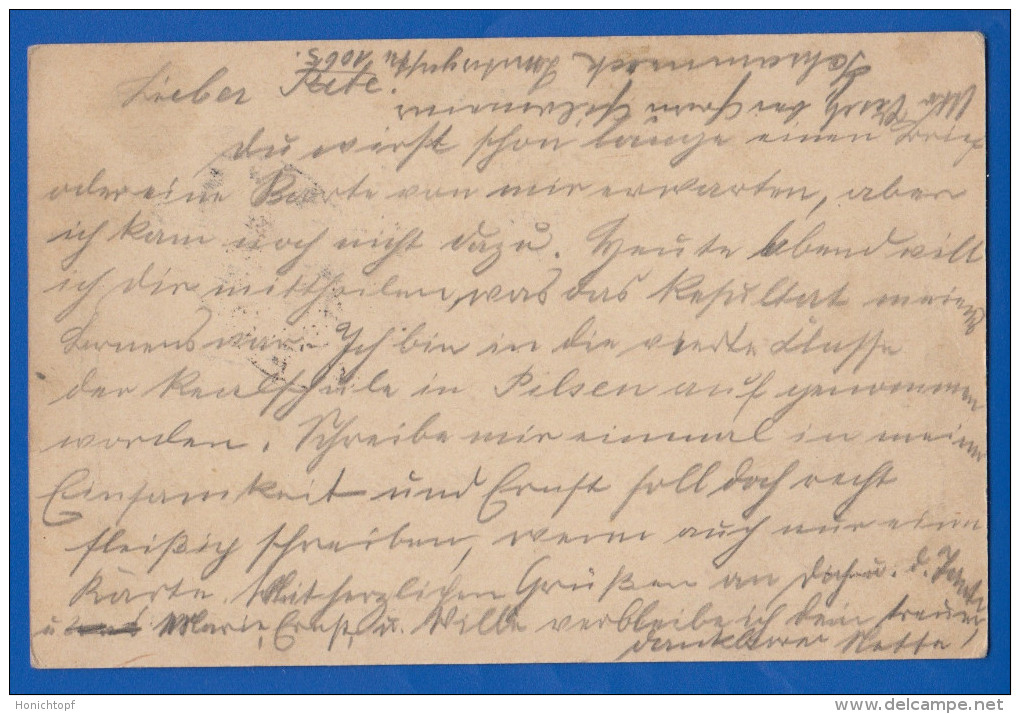 Lieber
Du wirst schon lange einen Brief
oder eine Karte von mir erwarten, aber
ich kam noch nicht dazu. Heute Abend will
ich dir mittheilen, was das Resultat meines
Lernens war. Ich bin in die vierte Classe
der Realschule in Pilsen aufgenommen
worden. Schreibe mir einmal in meiner
Einsamkeit und Ernst soll doch recht
fleißig schreiben, wenn auch nur eine
Karte. Mit herzlichen Grüßen an Dich u. d. Tante
u. Marie, Ernst, u. Willi verbleibe ich dein treuer,
dankbarer Neffe
Honichtopf
www.delcampe.net